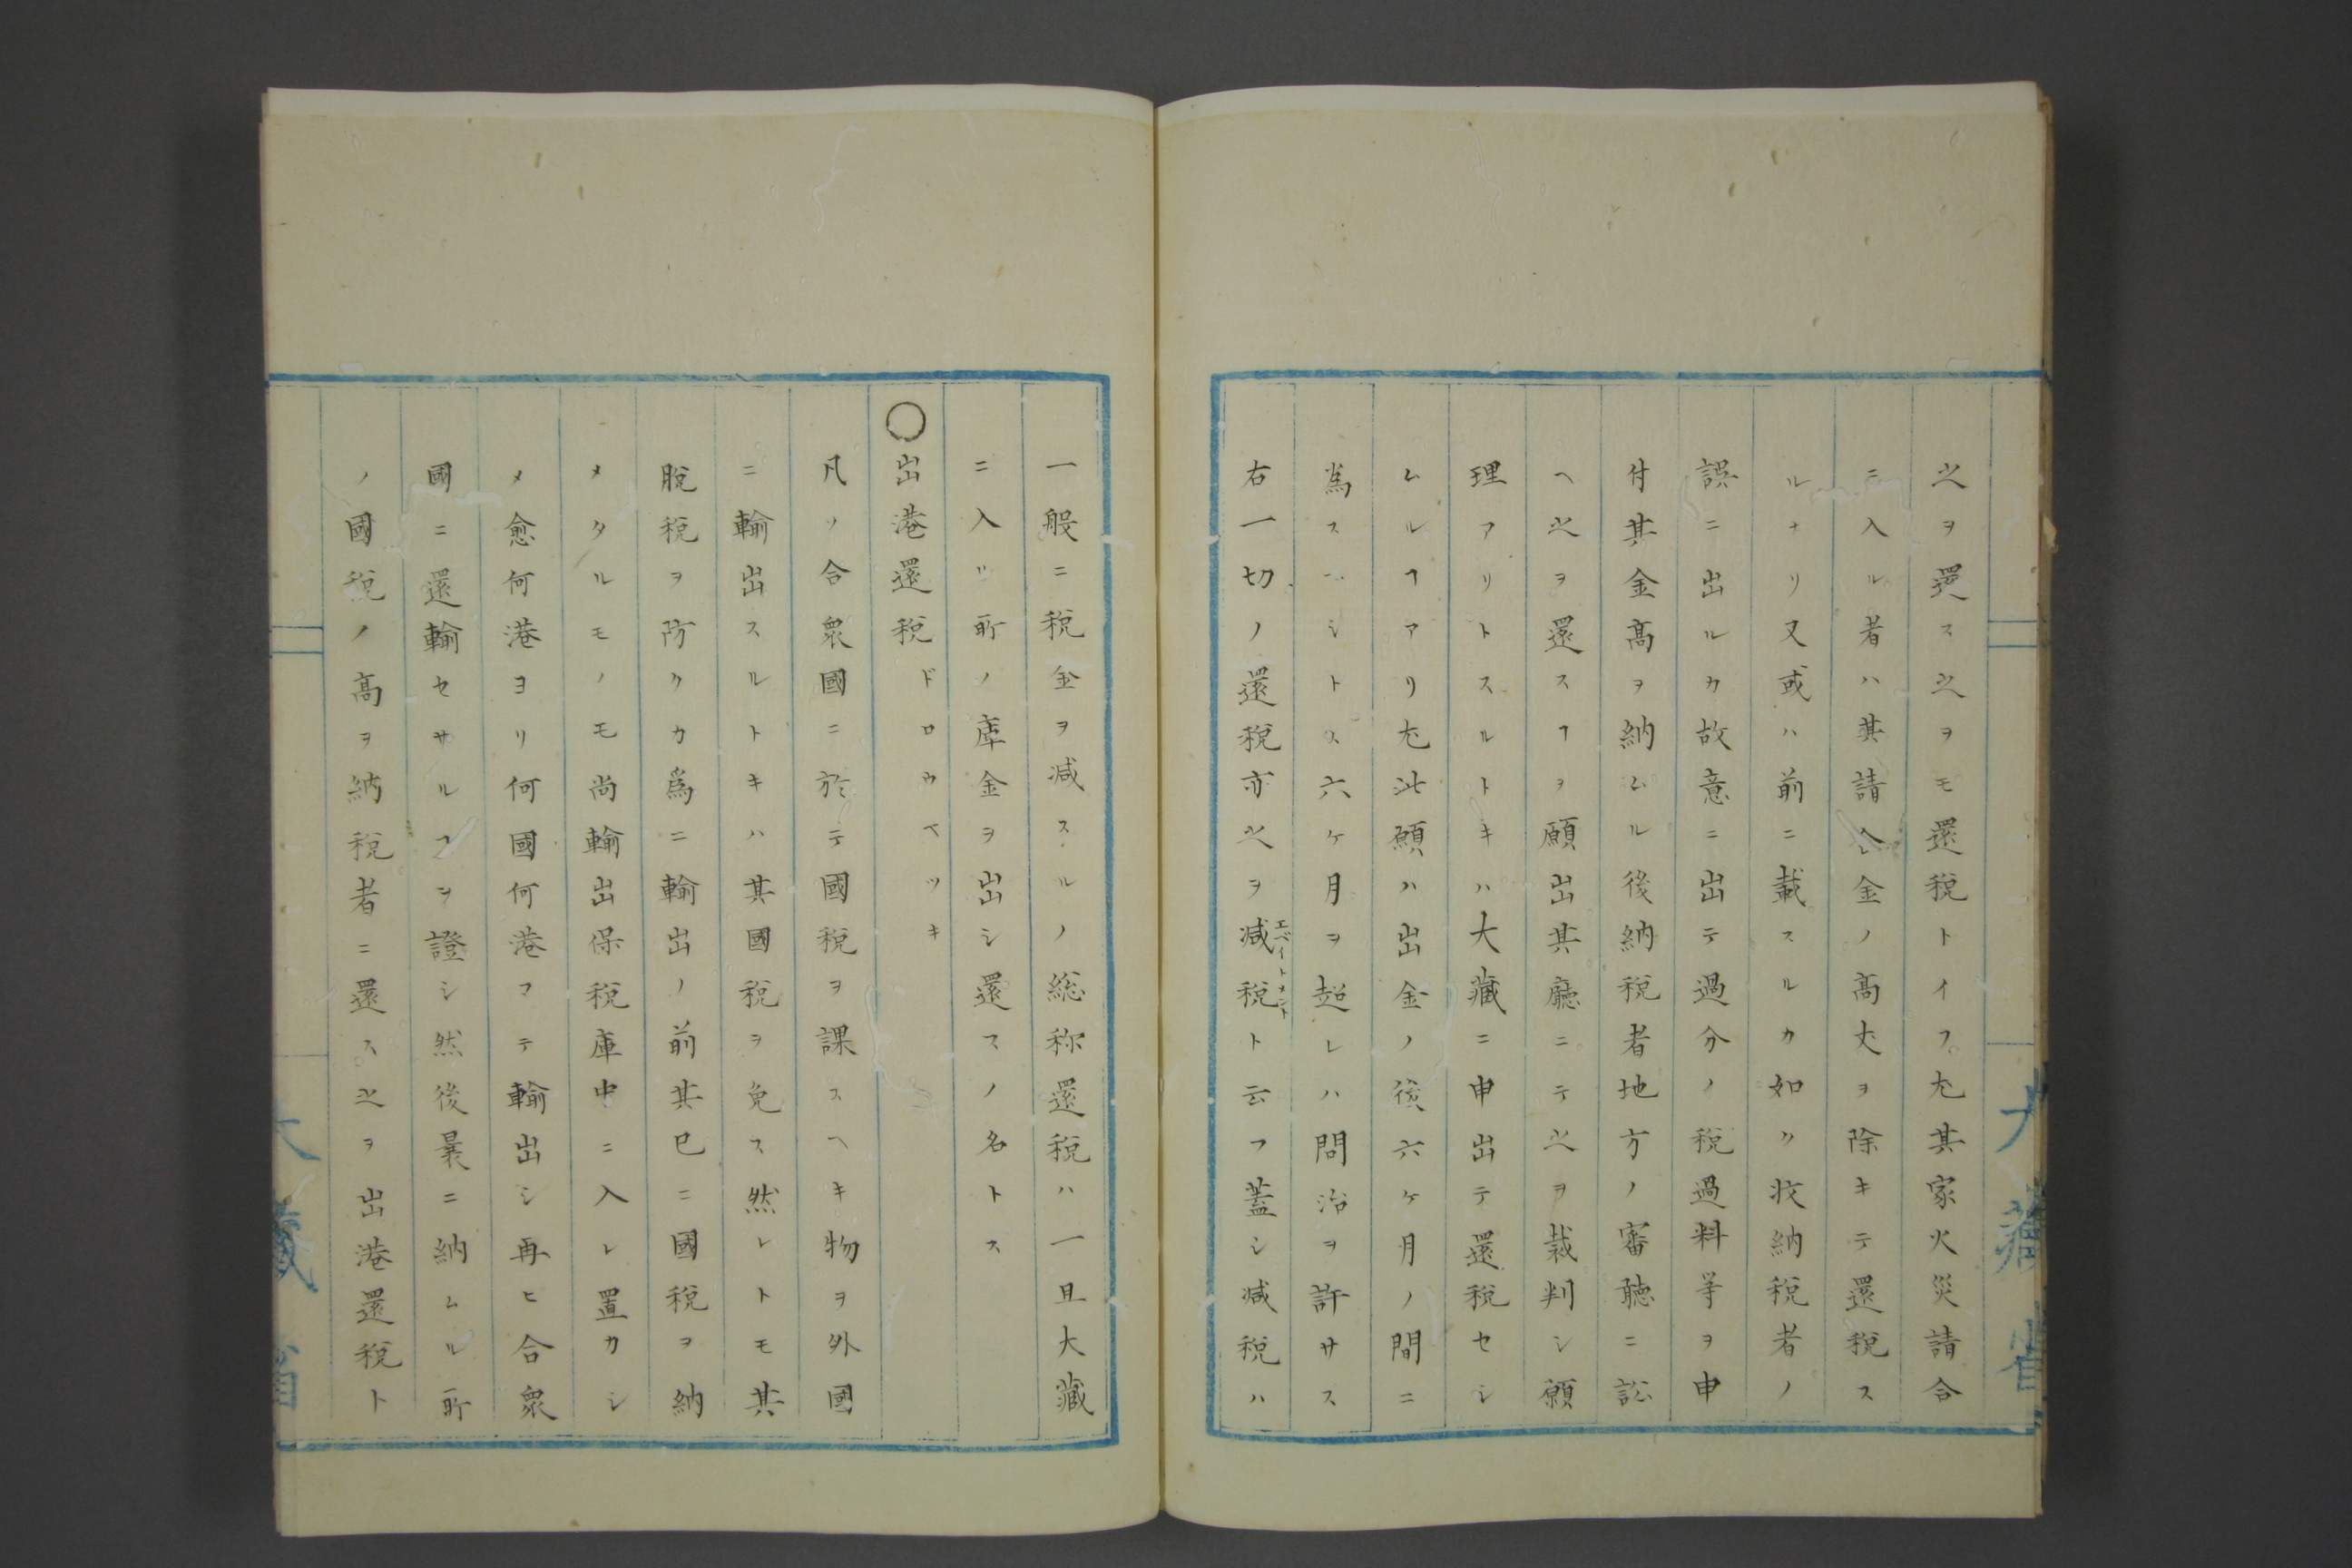 之ヲ還ス之ヲモ還税トイフ尤其家火災請合
ニ入ル者ハ其請合金ノ高丈ヲ除キテ還税ス
ルナリ又或ハ前ニ載スルカ如ク收納税者ノ
誤ニ出ルカ故意ニ出テ過分ノ税過料等ヲ申
付其金高ヲ納ムル後納税者地方ノ審聴ニ訟
ヘ之ヲ還スヿヲ願出其廳ニテ之ヲ裁判シ願
理アリトスルトキハ大藏ニ申出テ還税セシ
ムルヿアリ尤此願ハ出金ノ後六ケ月ノ間ニ
為スヘシトス六ケ月ヲ超レハ問治ヲ許サス
右一切ノ還税亦之ヲ減税ト云フ蓋シ減税ハ
エベイトメント
一般ニ税金ヲ減スルノ総称還税ハ一旦大藏
ニ入ツ所ノ庫金ヲ出シ還スノ名トス
○出港還税 ドロウベツキ
凡ソ合衆國ニ於テ國税ヲ課スヘキ物ヲ外國
ニ輸出スルトキハ其國税ヲ免ス然レトモ其
脱税ヲ防クカ爲ニ輸出ノ前其巳ニ國税ヲ納
メタルモノモ尚輸出保税庫中ニ入レ置カシ
メ愈何港ヨリ何國何港マテ輸出シ再ヒ合衆
國ニ還輸セサルヿヲ證シ然後曩ニ納ムル所
ノ國税ノ高ヲ納税者ニ還ス之ヲ出港還税ト
大藏省
大藏省